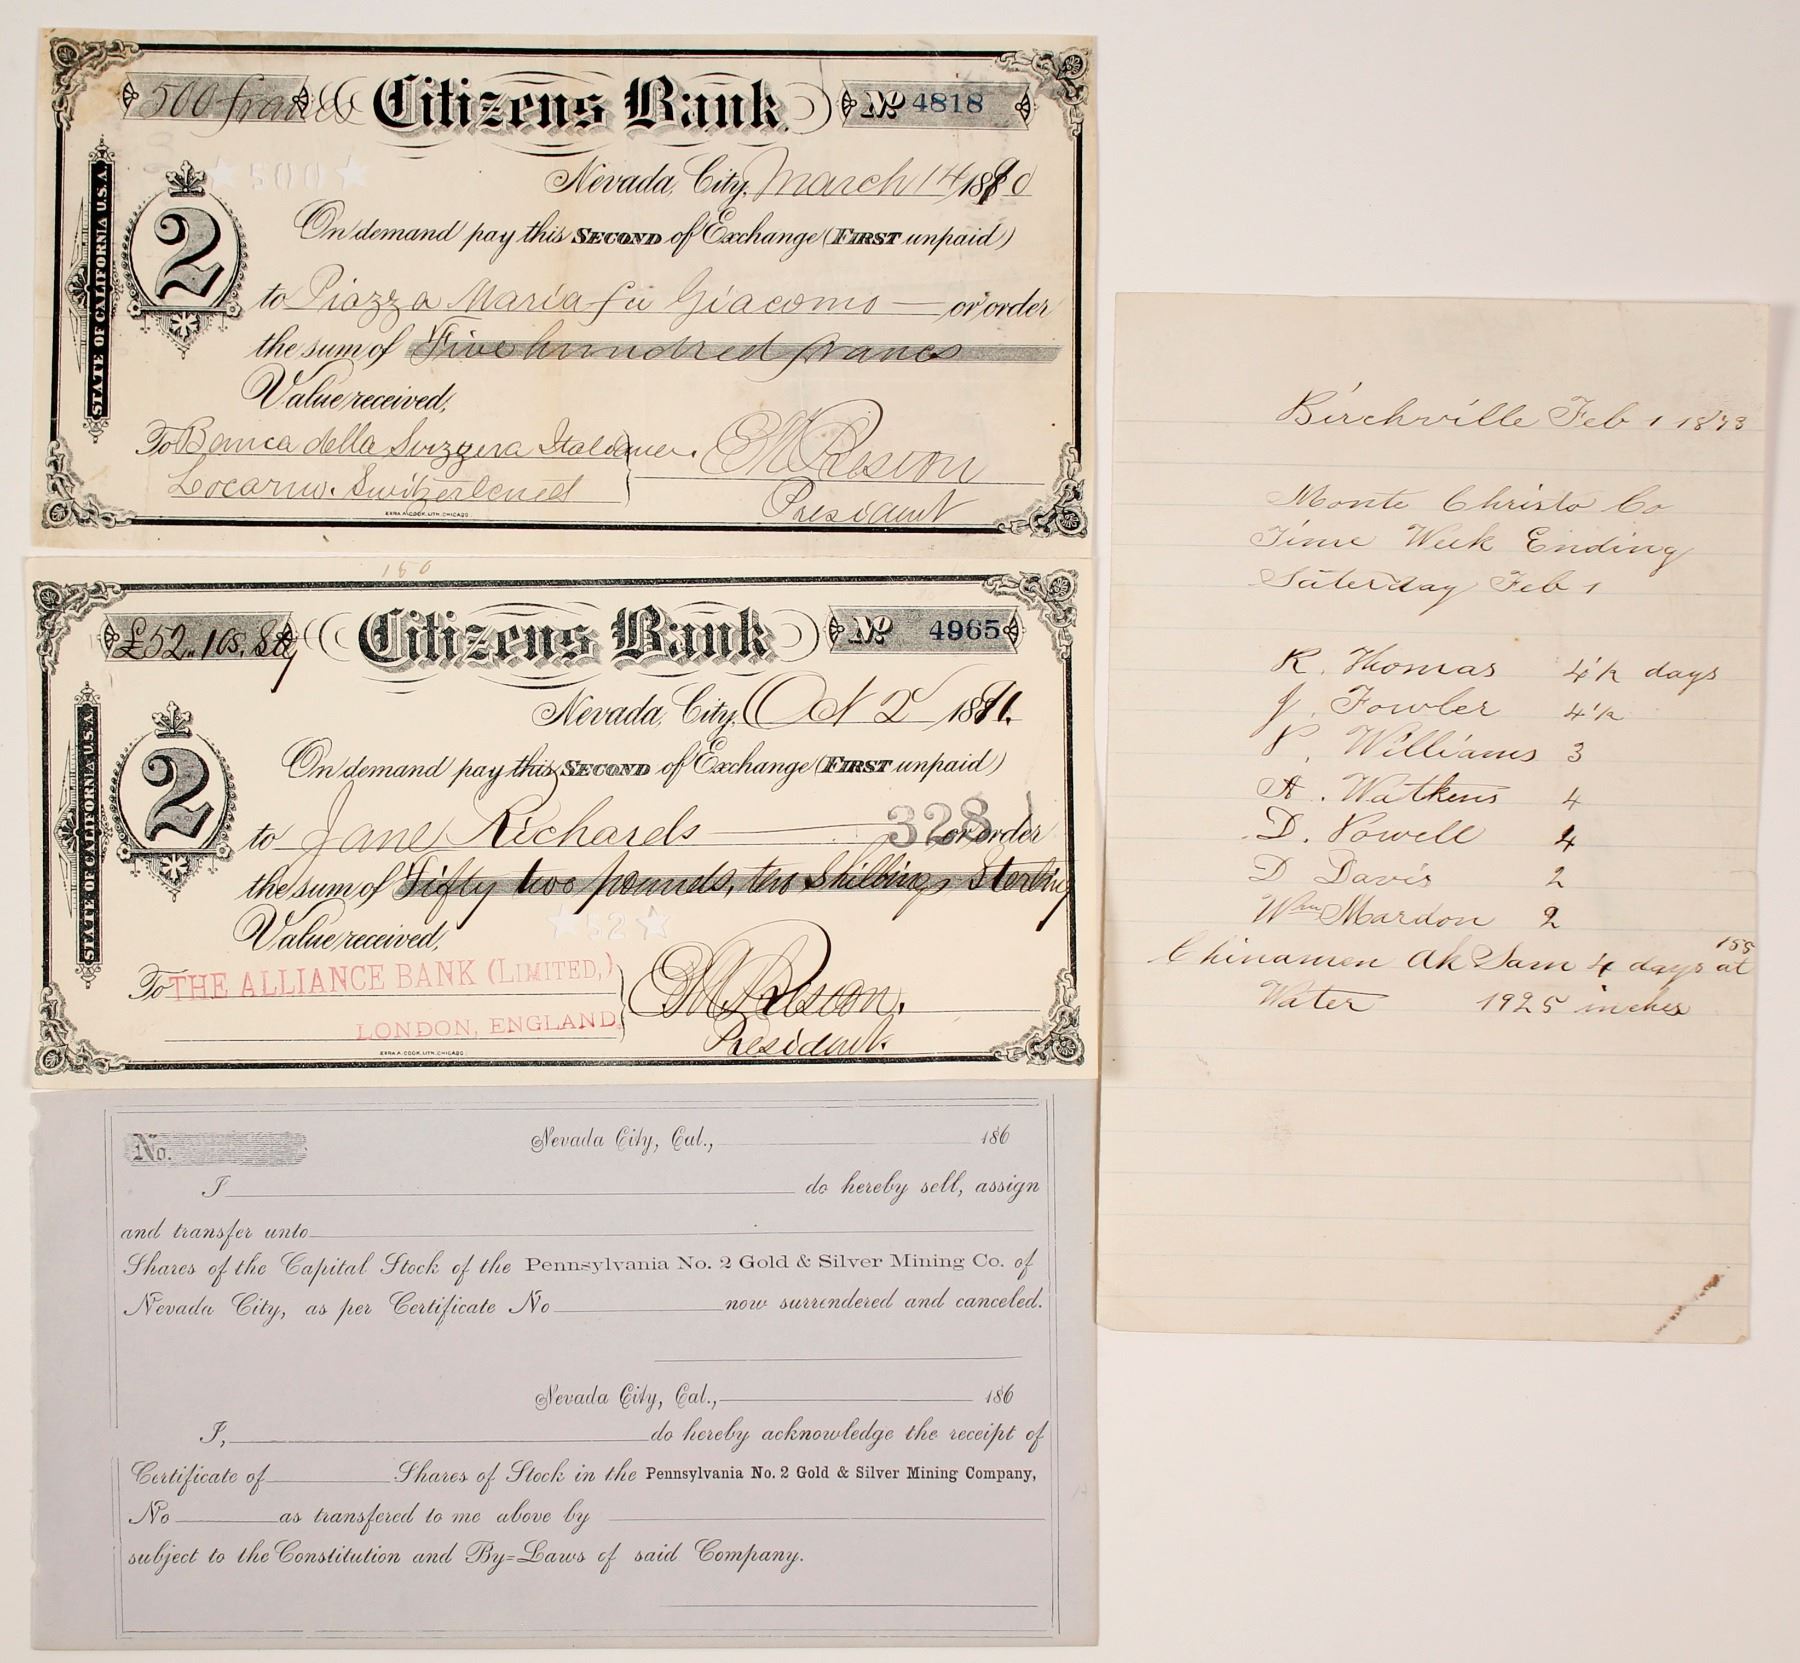 500 francs Citizens Bank No 4818
★500★
Nevada City, March 14 1890
On demand pay this SECOND of Exchange (FIRST unpaid)
2
STATE OF CALIFORNIA U.S.A.
to Piazza Maria fu Giacomo or order
the sum of Five hundred francs
Value received,
To Banca della Svizzera Italiana.
Locarno. Switzerland
President
EZRA A. COOK. LITH. CHICAGO
150
£52.. 10s. Stg Citizens Bank No 4965
Nevada City, Oct 2 1891.
On demand pay this SECOND of Exchange (FIRST unpaid)
2
STATE OF CALIFORNIA U.S.A.
to Jane Richards or order
328
the sum of Fifty two pounds, ten Shillings Sterling
★52★
Value received,
To THE ALLIANCE BANK (LIMITED,)
LONDON, ENGLAND.
President.
EZRA A. COOK. LITH. CHICAGO
No. Nevada City, Cal., 186
I do hereby sell, assign
and transfer unto
Shares of the Capital Stock of the Pennsylvania No. 2 Gold & Silver Mining Co. of
Nevada City, as per Certificate No now surrendered and canceled.
Nevada City, Cal., 186
I, do hereby acknowledge the receipt of
Certificate of Shares of Stock in the Pennsylvania No. 2 Gold & Silver Mining Company,
No as transfered to me above by
subject to the Constitution and By=Laws of said Company.
Birchville Feb 1 1873
Monte Christo Co
Time Week Ending
Saterday Feb 1
R. Thomas 4½ days
J. Fowler 4½
P. Williams 3
A. Watkins 4
D. Powell 4
D Davis 2
Wm Mardon 2
Chinamen Ah Sam 4 days at 155
Water 1925 inches